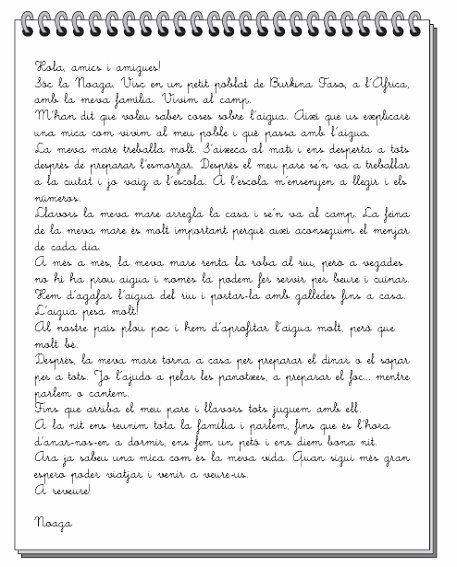 Hola, amics i amigues!
Sóc la Noaga. Visc en un petit poblat de Burkina Faso, a l'Àfrica,
amb la meva família. Vivim al camp.
M'han dit que voleu saber coses sobre l'aigua. Així que us explicaré
una mica com vivim al meu poble i què passa amb l'aigua.
La meva mare treballa molt. S'aixeca al matí i ens desperta a tots
després de preparar l'esmorzar. Després el meu pare se'n va a treballar
a la ciutat i jo vaig a l'escola. A l'escola m'ensenyen a llegir i els
números.
Llavors la meva mare arregla la casa i se'n va al camp. La feina
de la meva mare és molt important perquè així aconseguim el menjar
de cada dia.
A més a més, la meva mare renta la roba al riu, però a vegades
no hi ha prou aigua i només la podem fer servir per beure i cuinar.
Hem d'agafar l'aigua del riu i portar-la amb galledes fins a casa.
L'aigua pesa molt!
Al nostre país plou poc i hem d'aprofitar l'aigua molt, però que
molt bé.
Després, la meva mare torna a casa per preparar el dinar o el sopar
per a tots. Jo l'ajudo a pelar les panotxes, a preparar el foc... mentre
parlem o cantem.
Fins que arriba el meu pare i llavors tots juguem amb ell.
A la nit ens reunim tota la família i parlem, fins que és l'hora
d'anar-nos-en a dormir, ens fem un petó i ens diem bona nit.
Ara ja sabeu una mica com és la meva vida. Quan sigui més gran
espero poder viatjar i venir a veure-us.
A reveure!
Noaga